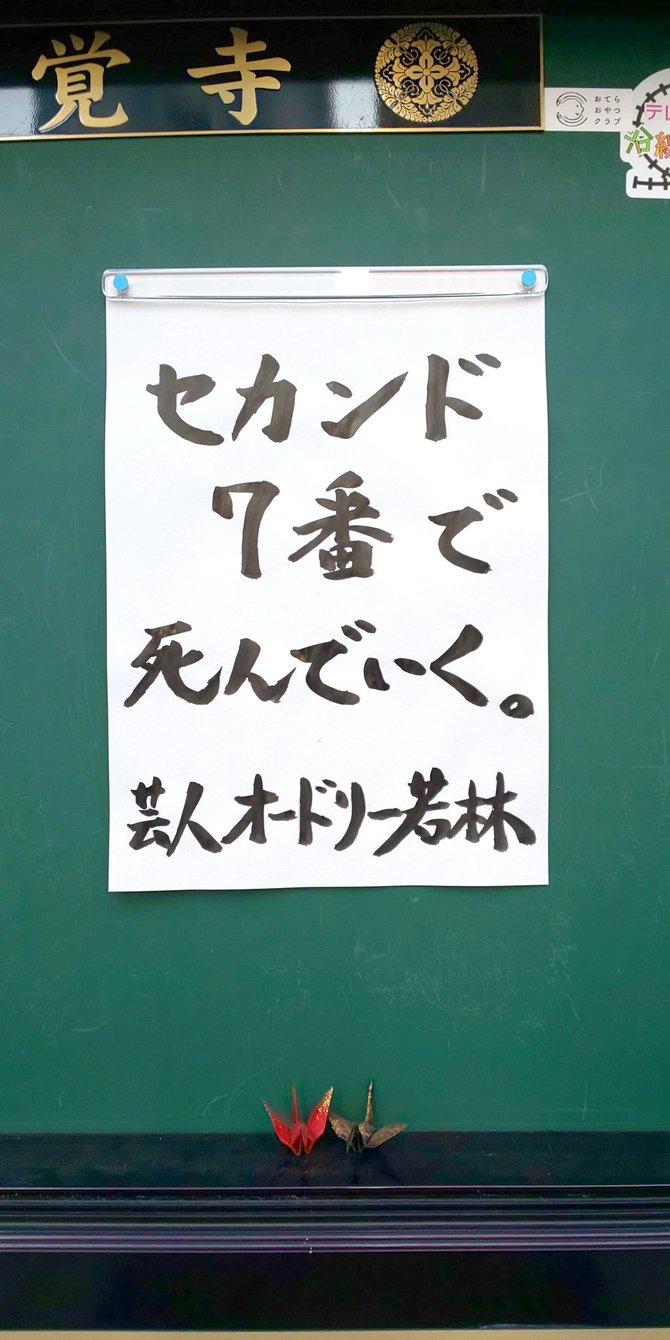 覚寺
おてら
おやつ
クラブ
テレ
沿線
セカンド
7番で
死んでいく。
芸人オードリー若林